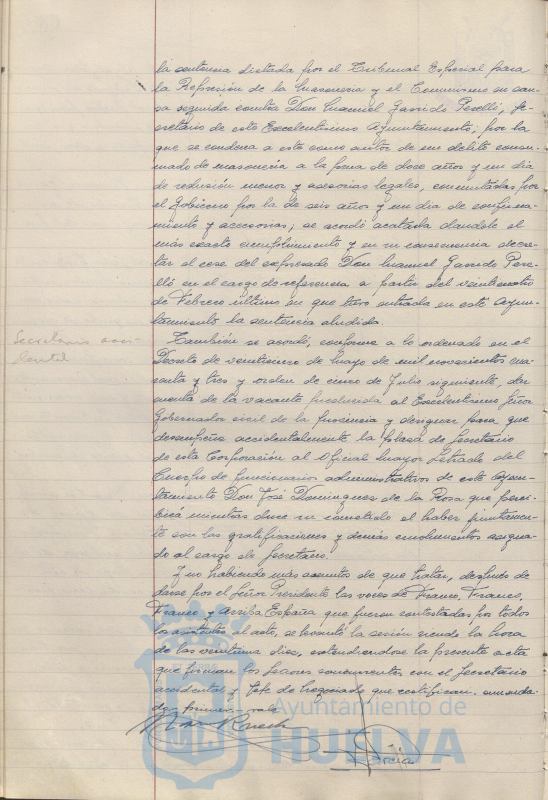 la sentencia dictada por el Tribunal Especial para
la Represión de la Masonería y el Comunismo en cau-
sa seguida contra Don Manuel Garrido Perelló, Se-
cretario de este Excelentísimo Ayuntamiento, por la
que se condena a este como autor de un delito consu-
mado de masonería a la pena de doce años y un día
de reclusión menor y accesorias legales, conmutadas por
el Gobierno por la de seis años y un día de confina-
miento y accesorias; se acordó acatarla dándole el
más exacto cumplimiento y en su consecuencia decre-
tar el cese del expresado Don Manuel Garrido Pere-
lló en el cargo de referencia a partir del veinticuatro
de Febrero último en que tuvo entrada en este Ayun-
tamiento la sentencia aludida.
Secretario acci-
dental
También se acordó, conforme a lo ordenado en el
Decreto de veinticinco de mayo de mil novecientos cua-
renta y tres y orden de cinco de Julio siguiente, dar
cuenta de la vacante producida al Excelentísimo Señor
Gobernador civil de la provincia y designar para que
desempeñe accidentalmente la plaza de Secretario
de esta Corporación al Oficial Mayor Letrado del
Cuerpo de funcionarios administrativos de este Ayun-
tamiento Don José Domínguez de la Rosa que perci-
birá mientras dure su cometido el haber juntamen-
te con las gratificaciones y demás emolumentos asigna-
do al cargo de Secretario.
Y no habiendo más asuntos de que tratar, después de
darse por el Señor Presidente las voces de Franco, Franco,
Franco y Arriba España que fueron contestadas por todos
los asistentes al acto, se levantó la sesión siendo la hora
de las veintiuna diez, extendiéndose la presente acta
que firman los señores concurrentes con el Secretario
accidental y Jefe de Negociado que certifican. enmenda-
do= primer= vale
Ayuntamiento de
HUELVA